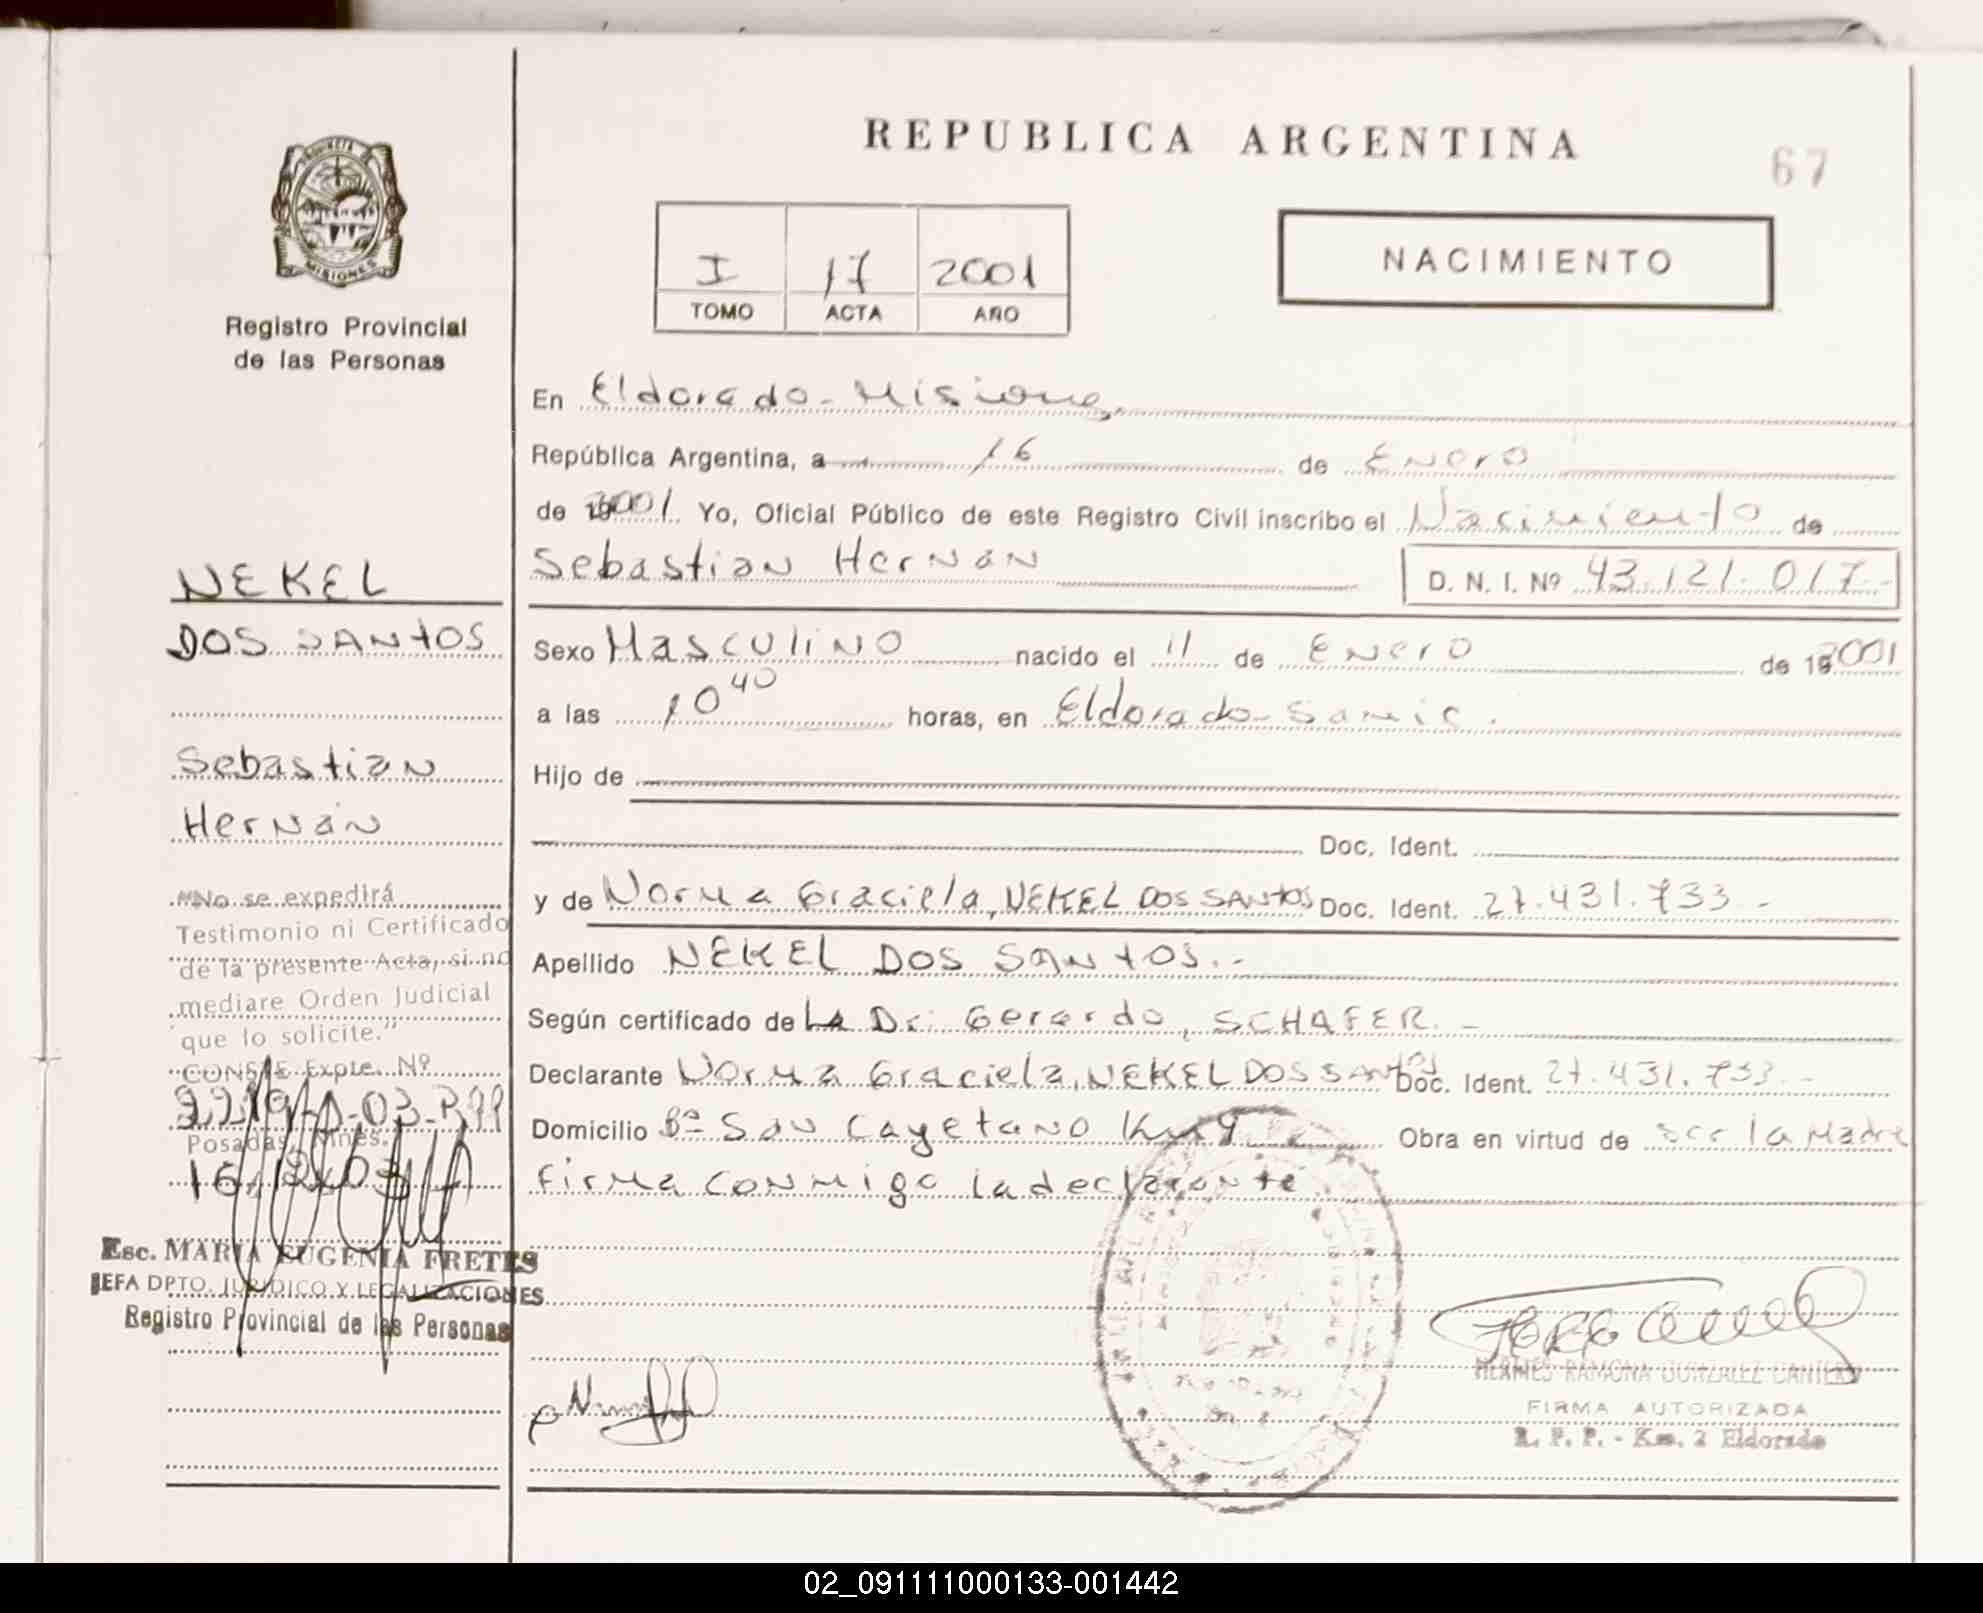 REPUBLICA ARGENTINA
67
PROVINCIA DE
MISIONES
Registro Provincial
de las Personas
I 17 2001
TOMO ACTA AÑO
NACIMIENTO
En Eldorado - Misiones,
República Argentina, a 16 de Enero
de 2001. Yo, Oficial Público de este Registro Civil inscribo el Nacimiento de
Sebastian Hernán D. N. I. Nº 43.121.017.-
Sexo Masculino nacido el 11 de Enero de 2001
a las 10 40 horas, en Eldorado - Samic.
Hijo de
Doc. Ident.
y de Norma Graciela, NEKEL DOS SANTOS Doc. Ident. 27.431.733.-
Apellido NEKEL DOS SANTOS.-
Según certificado de La Dr: Gerardo, SCHAFER. -
Declarante Norma Graciela, NEKEL DOS SANTOS Doc. Ident. 27.431.733.-
Domicilio Bº San Cayetano Km 9 Obra en virtud de ser la Madre
Firma conmigo la declarante
NEKEL
DOS SANTOS
Sebastian
Hernán
"No se expedirá
Testimonio ni Certificado
de la presente Acta, si no
mediare Orden Judicial
que lo solicite."
CONSTE Expte. Nº
Posadas, Mnes.
Esc. MARIA EUGENIA FRETES
JEFA DPTO. JURIDICO Y LEGALIZACIONES
Registro Provincial de las Personas
RAMONA GONZALEZ
FIRMA AUTORIZADA
R. P. P. - Km. 2 Eldorado
02_091111000133-001442